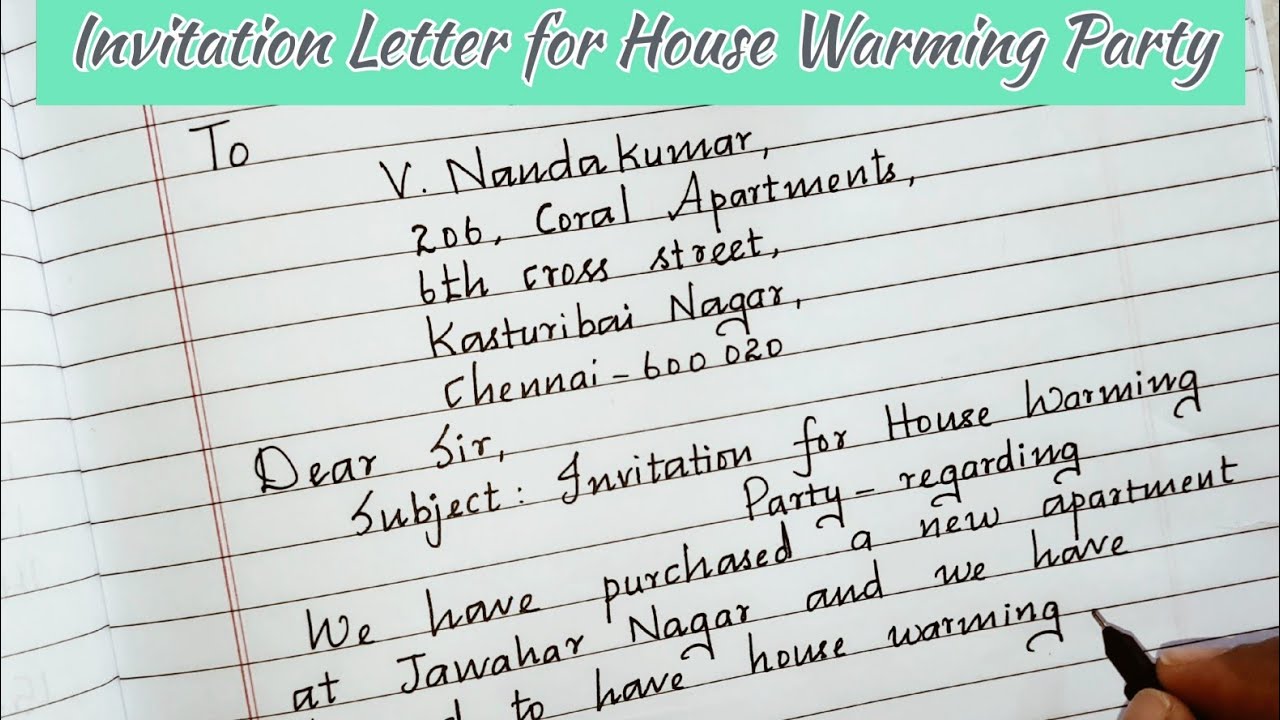 Invitation Letter for House Warming Party
To
V. Nandakumar,
206, Coral Apartments,
6th cross street,
Kasturibai Nagar,
Chennai - 600 020
Dear Sir,
Subject: Invitation for House Warming
Party - regarding
We have purchased a new apartment
at Jawahar Nagar and we have
to have house warming